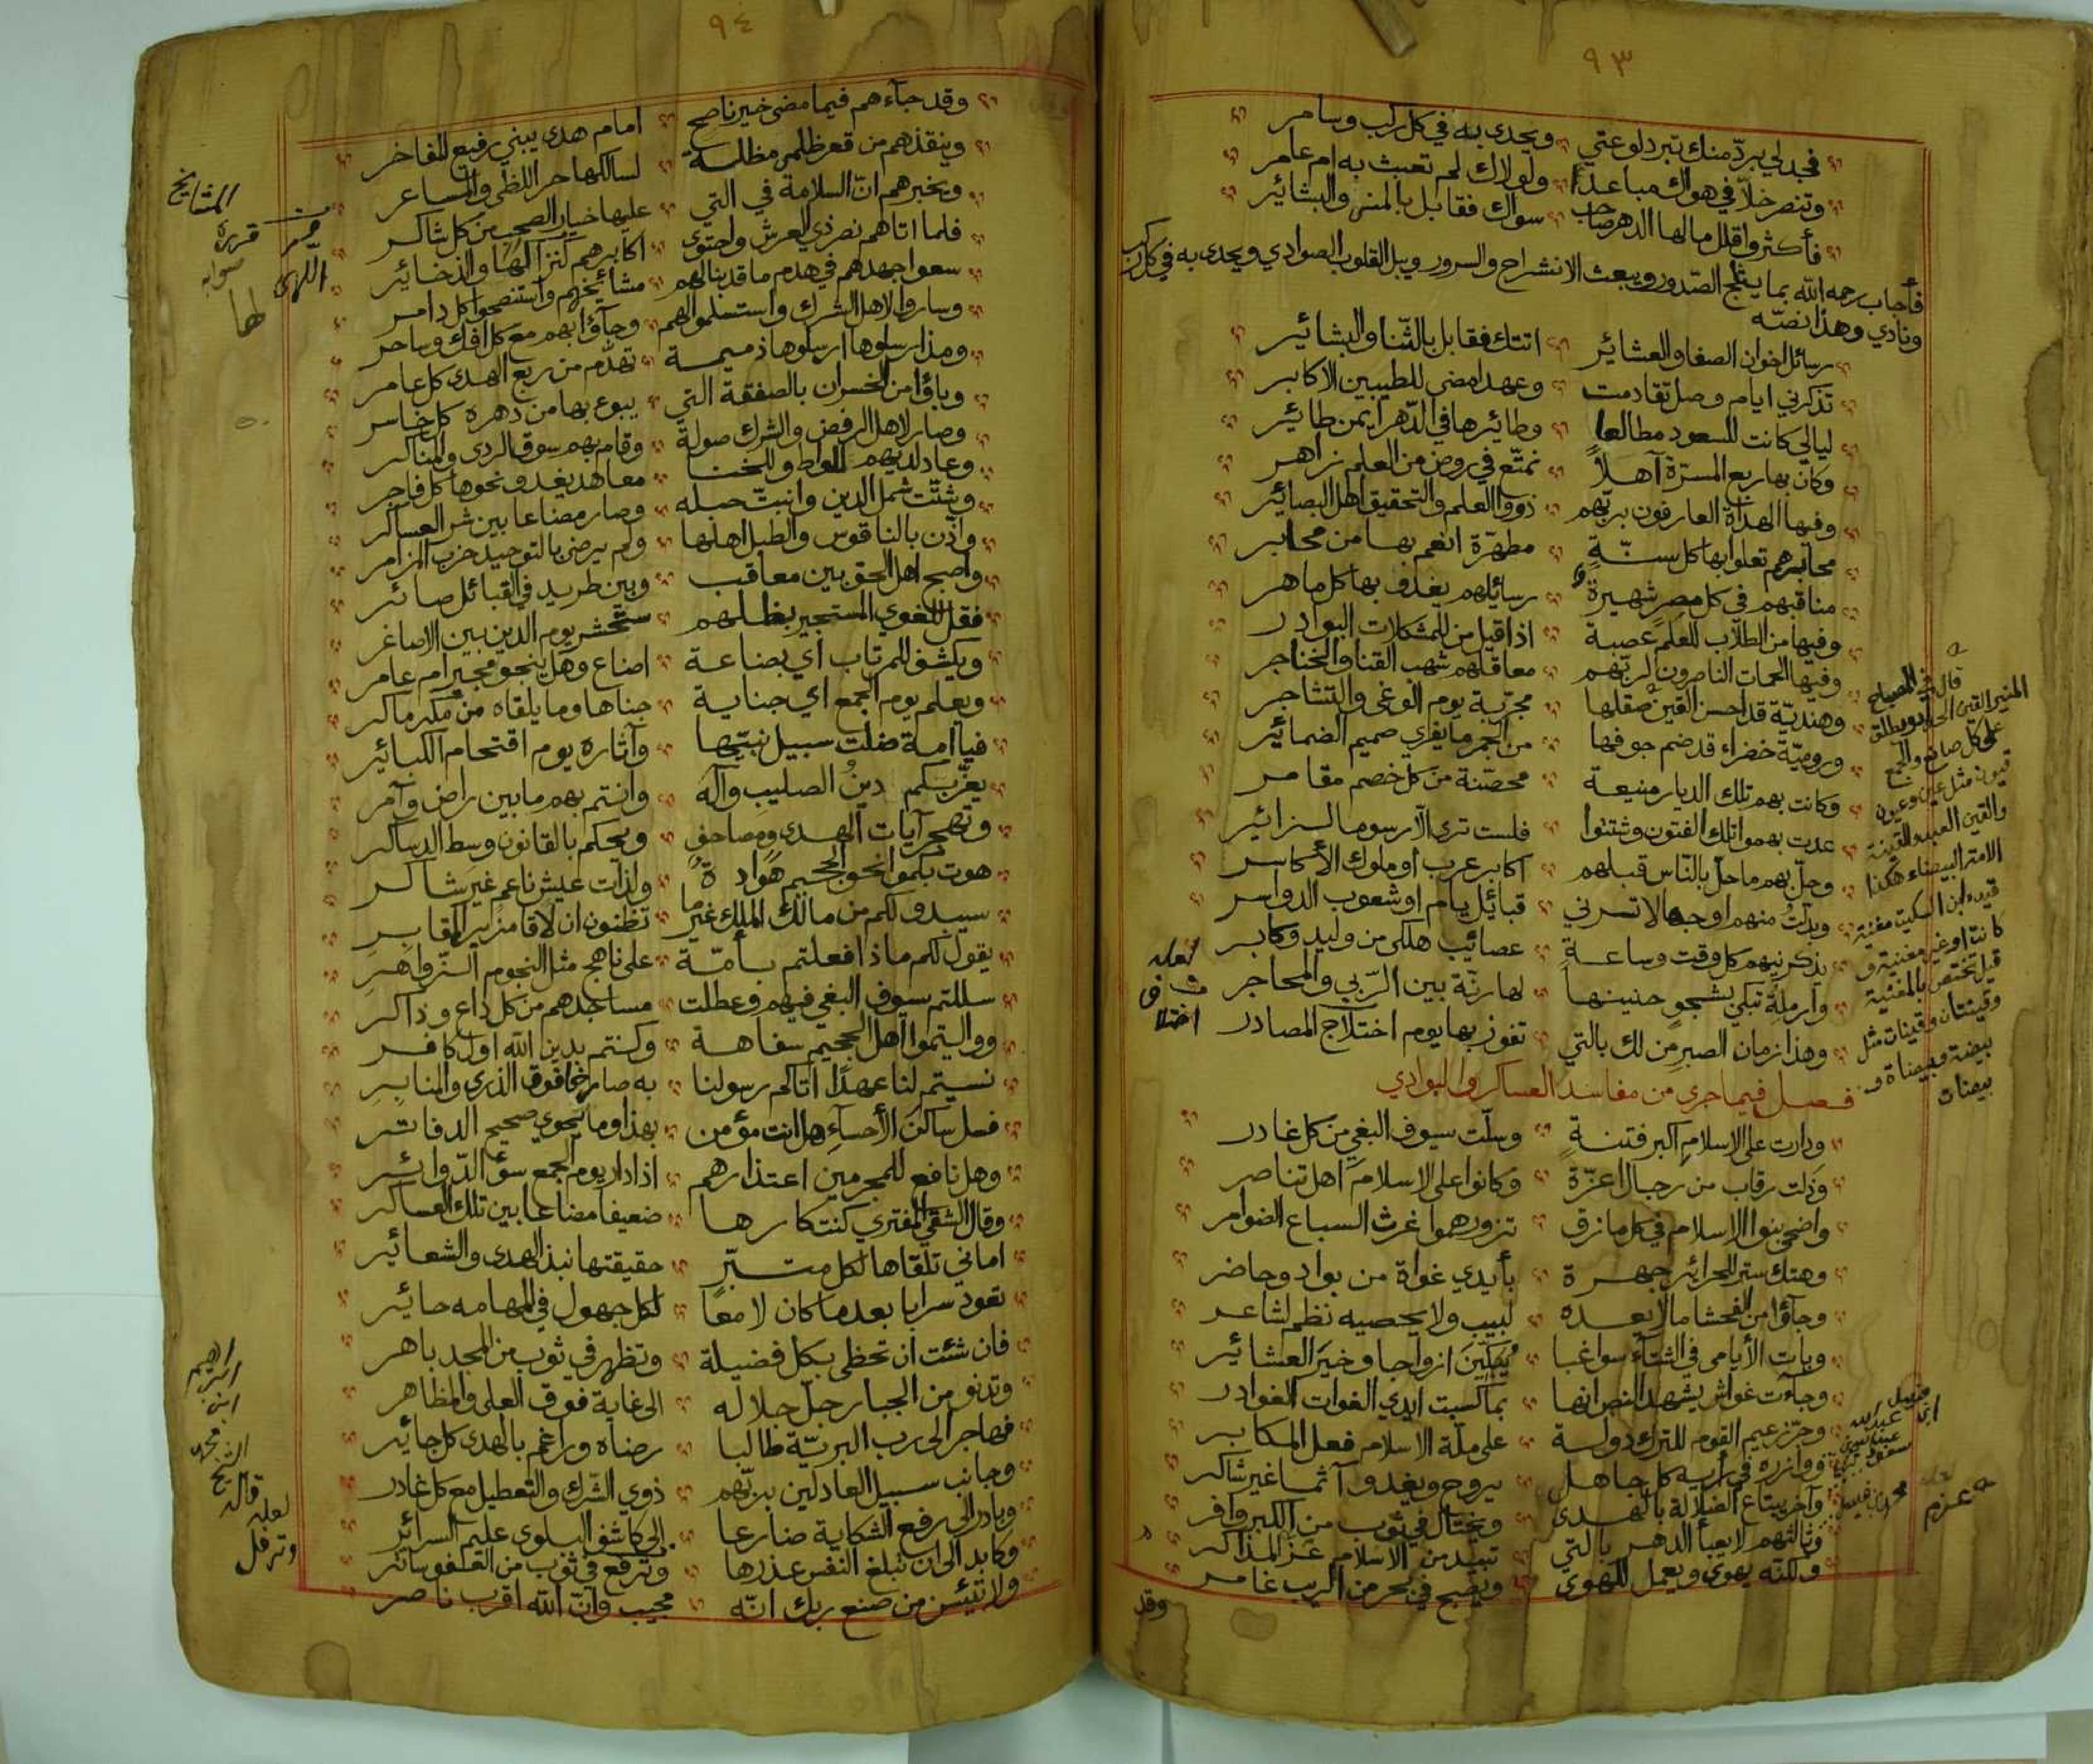 ٩٣
فجد لي برد منك تبرد لوعتي ويحدى به في كل ركب وسامر
وتنصر خلا في هواك مباعدا ولولاك لم تعبث به ام عامر
فأكثر واقلل مالها الدهر صاحب سواك فقابل بالمنى والبشائر
فأجاب رحمه الله بما يثلج الصدور ويبعث الانشراح والسرور ويبل القلوب الصوادي ويحدى به في كل ركب
ونادي وهذا نصه
رسائل اخوان الصفا والعشائر اتتك فقابل بالثنا والبشائر
تذكرني ايام وصل تقادمت وعهدا مضى للطيبين الاكابر
ليالي كانت للسعود مطالعا وطائرها في الدهر ايمن طائر
وكان بها ربع المسرة آهلا نمتع في روض من العلم زاهر
وفيها الهداة العارفون بربهم ذووا العلم والتحقيق اهل البصائر
محابرهم تعلوا بها كل سنة مطهرة انعم بها من محابر
مناقبهم في كل مصر شهيرة رسائلهم يغدو بها كل ماهر
وفيها من الطلاب للعلم عصبة اذا قيل من للمشكلات البوادر
وفيها الحماة الناصرون لربهم معاقلهم شهب القنا والخناجر
وهندية قد احسن القين صقلها مجربة يوم الوغى والتشاجر
ورومية خضراء قد ضم جوفها من الجمر ما يفري صميم الضمائر
وكانت بهم تلك الديار منيعة محصنة من كل خصم مقامر
عدت بهموا تلك الفتون وشتتوا فلست ترى الا رسوما لزائر
وحل بهم ما حل بالناس قبلهم اكابر عرب او ملوك الأكاسر
وبدلت منهم اوجها لا تسرني قبائل يام او شعوب الدواسر
يذكرنيهم كل وقت وساعة عصائب هلكى من وليد وكابر
وأرملة تبكي بشجو حنينها لها رنة بين الربى والمحاجر
وهذا زمان الصبر من لك بالتي تفوز بها يوم اختلاج المصادر
فصل فيما جرى من مفاسد العساكر والبوادي
ودارت على الاسلام اكبر فتنة وسلت سيوف البغي من كل غادر
وذلت رقاب من رجال اعزة وكانوا على الاسلام اهل تناصر
واضحى بنوا الاسلام في كل مازق تزورهموا غرث السباع الضوامر
وهتك ستر للحرائر جهرة بأيدي غواة من بواد وحاضر
وجآؤا من الفحشا مالا يعده لبيب ولا يحصيه نظم لشاعر
وبات الأيامى في الشتاء سواغبا يبكين ازواجا وخير العشائر
وجاءت غواش يشهد النص انها بما كسبت ايدي الغوات الغوادر
وجر زعيم القوم للترك دولة على ملة الاسلام فعل المكابر
ووازره في رأيه كل جاهل يروح ويغدو آثما غير شاكر
وآخر يبتاع الضلالة بالهدى ويختال في ثوب من الكبر وافر
وثالثهم لا يعبأ الدهر بالتي تبيد من الاسلام عز المذاكر
ولكنه يهوى ويعمل للهوى ويصبح في بحر من الريب غامر
وقد
قال في المصباح
المنير القين الحداد ويطلق
على كل صانع والجمع
قيون مثل عين وعيون
والقين العبد والقينة
الامة البيضاء هكذا
قيده ابن السكيت مغنية
كانت او غير مغنية و
قيل تختص بالمغنية
وقينتان وقينات مثل
بيضة وبيضات و
بيضات
لعله
في
اختلا
عزم
٩٤
وقد جآءهم فيما مضى خير ناصح امام هدى يبني رفيع المفاخر
وينقذهم من قعر ظلم مظلة لسالكها حر اللظى والمساعر
ويخبرهم ان السلامة في التي عليها خيار الصحب من كل شاكر
فلما اتاهم نصر ذي العرش واحتوى اكابرهم كنز اللها والذخائر
سعوا جهدهم في هدم ما قد بنا لهم مشائخهم واستنصحوا كل دامر
وساروا لاهل الشرك واستسلموا لهم وجآؤا بهم مع كل افك وساحر
ومذ ارسلوها ارسلوها ذميمة تهدم من ربع الهدى كل عامر
وباؤا من الخسران بالصفقة التي يبوء بها من دهره كل خاسر
وصار لاهل الرفض والشرك صولة وقام بهم سوق الردى والمناكر
وعاد لديهم للواط وللخنا معاهد يغدو نحوها كل فاجر
وشتت شمل الدين وانبت حبله وصار مضاعا بين شر العساكر
واذن بالناقوس والطبل اهلها ولم يرض بالتوحيد حزب المزامر
واصبح اهل الحق بين معاقب وبين طريد في القبائل صائر
فقل للغوي المستجير بظلهم ستحشر يوم الدين بين الاصاغر
ويكشف للمرتاب اي بضاعة اضاع وهل ينجو مجير ام عامر
ويعلم يوم الجمع اي جناية جناها وما يلقاه من مكر ماكر
فيا امة ضلت سبيل نبيها وآثاره يوم اقتحام الكبائر
يعز بكم دين الصليب وآله وانتم بهم ما بين راض وآمر
وتهجر آيات الهدى ومصاحف ويحكم بالقانون وسط الدساكر
هوت بكموا نحو الجحيم هوادة ولذات عيش ناعم غير شاكر
سيبدو لكم من مالك الملك غير ما تظنون ان لاقا مزير المقابر
يقول لكم ماذا فعلتم بأمة على ناهج مثل النجوم الزواهر
سللتم سيوف البغي فيهم وعطلت مساجدهم من كل داع وذاكر
وواليتموا اهل الجحيم سفاهة وكنتم بدين الله اول كافر
نسيتم لنا عهدا اتاكم رسولنا به صارخا فوق الذرى والمنابر
فسل ساكن الأحساء هل انت مؤمن بهذا وما يحوي صحيح الدفاتر
وهل نافع للمجرمين اعتذارهم اذا دار يوم الجمع سوء الدوائر
وقال الشقي المفتري كنت كارها ضعيفا مضاعا بين تلك العساكر
اماني تلقاها لكل متبر حقيقتها نبذ الهدى والشعائر
تعود سرابا بعدما كان لامعا لكل جهول في المهامه حائر
فان شئت ان تحظى بكل فضيلة وتظهر في ثوب من المجد باهر
وتدنو من الجبار جل جلاله الى غاية فوق العلى والمظاهر
فهاجر الى رب البرية طالبا رضاه وراغم بالهدى كل جائر
وجانب سبيل العادلين بربهم ذوي الشرك والتعطيل مع كل غادر
وبادر الى رفع الشكاية ضارعا الى كاشف البلوى عليم السرائر
وكابد الى ان تبلغ النفس عذرها وترفع في ثوب من العفو ساتر
ولا تيئسن من صنع ربك انه مجيب وان الله اقرب ناصر
المشايخ
قرره
صوابه
اللهى
لها
ابراهيم
ابن
الشيخ محمد
قاله
لعله
وترفل